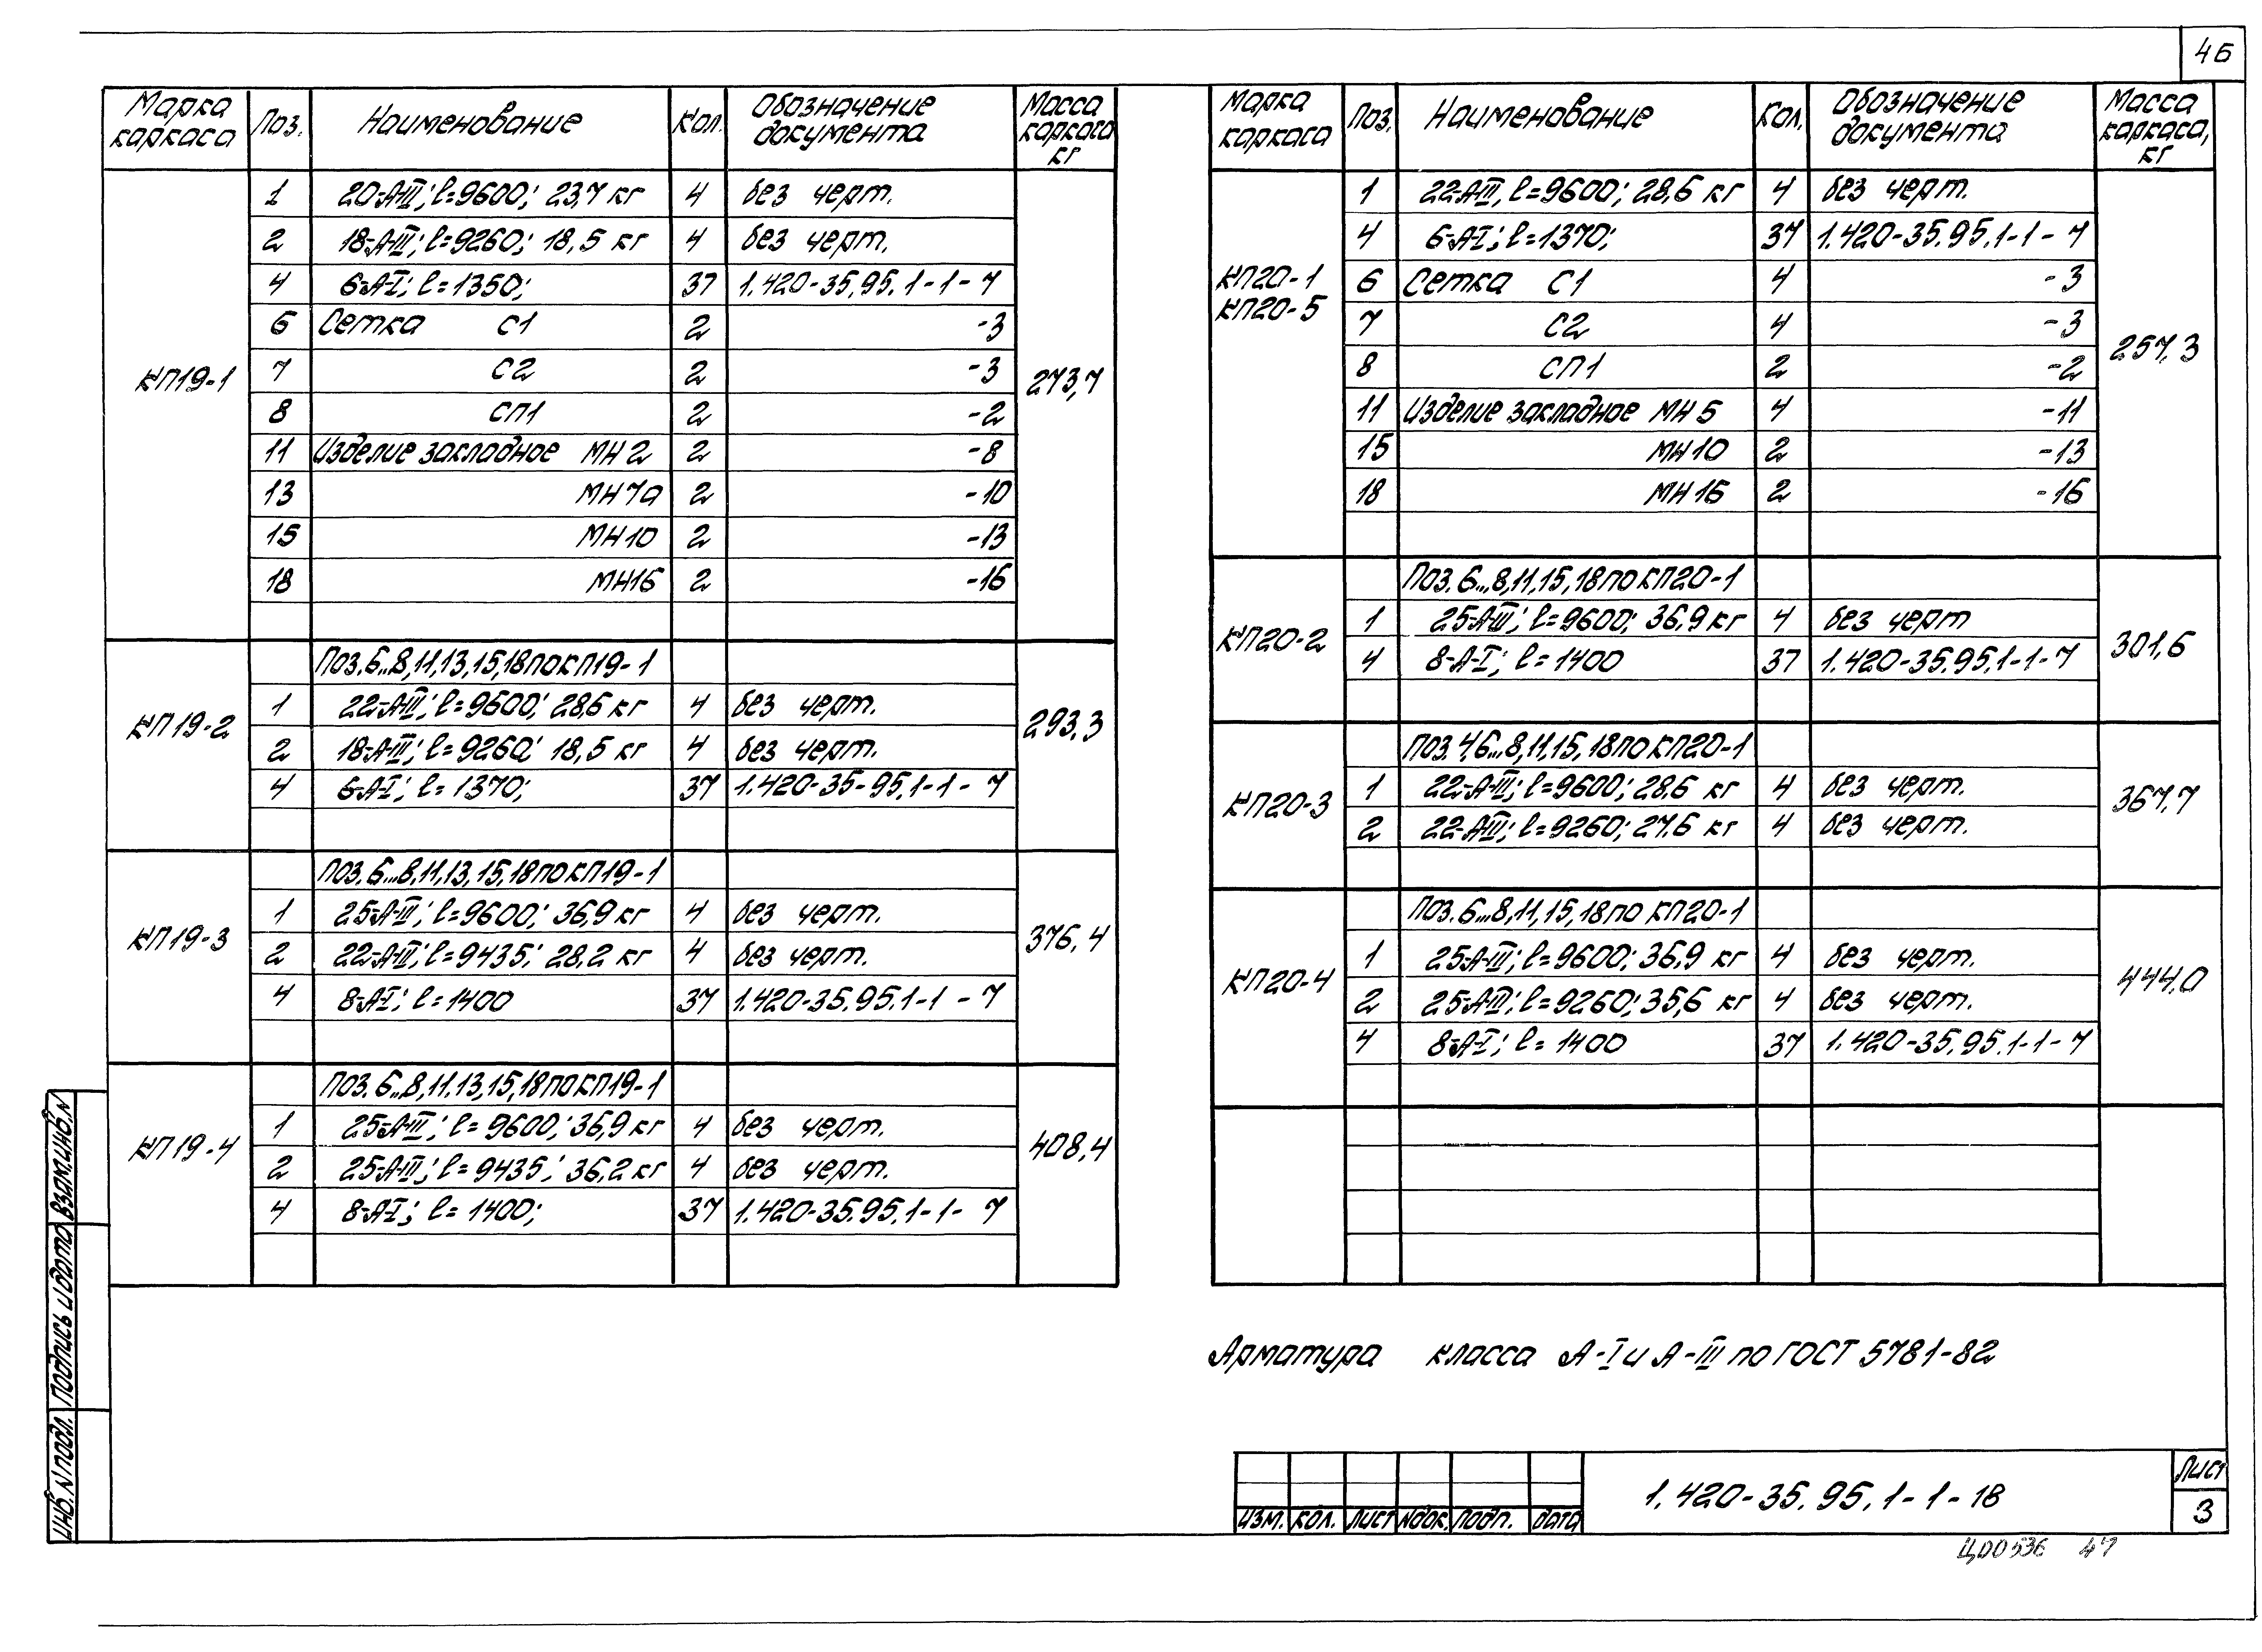 46
Марка каркаса Поз. Наименование Кол. Обозначение документа Масса каркаса кг
КП19-1 273,7
1 20-А-III; l=9600; 23,7 кг 4 без черт.
2 18-А-III; l=9260; 18,5 кг 4 без черт.
4 6-А-I; l=1350; 37 1.420-35.95.1-1-7
6 Сетка С1 2 -3
7 С2 2 -3
8 СП1 2 -2
11 Изделие закладное МН2 2 -8
13 МН7а 2 -10
15 МН10 2 -13
18 МН16 2 -16
КП19-2 293,3
Поз. 6...8,11,13,15,18 по КП19-1
1 22-А-III; l=9600; 28,6 кг 4 без черт.
2 18-А-III; l=9260; 18,5 кг 4 без черт.
4 6-А-I; l=1370; 37 1.420-35-95.1-1-7
КП19-3 376,4
Поз. 6...8,11,13,15,18 по КП19-1
1 25-А-III; l=9600; 36,9 кг 4 без черт.
2 22-А-III; l=9435; 28,2 кг 4 без черт.
4 8-А-I; l=1400 37 1.420-35.95.1-1-7
КП19-4 408,4
Поз. 6...8,11,13,15,18 по КП19-1
1 25-А-III; l=9600; 36,9 кг 4 без черт.
2 25-А-III; l=9435; 36,2 кг 4 без черт.
4 8-А-I; l=1400; 37 1.420-35.95.1-1-7
Марка каркаса Поз. Наименование Кол. Обозначение документа Масса каркаса, кг
КП20-1
КП20-5 257,3
1 22-А-III; l=9600; 28,6 кг 4 без черт.
4 6-А-I; l=1370; 37 1.420-35.95.1-1-7
6 Сетка С1 4 -3
7 С2 4 -3
8 СП1 2 -2
11 Изделие закладное МН5 4 -11
15 МН10 2 -13
18 МН16 2 -16
КП20-2 301,6
Поз. 6...8,11,15,18 по КП20-1
1 25-А-III; l=9600; 36,9 кг 4 без черт
4 8-А-I; l=1400 37 1.420-35.95.1-1-7
КП20-3 367,7
Поз. 4,6...8,11,15,18 по КП20-1
1 22-А-III; l=9600; 28,6 кг 4 без черт.
2 22-А-III; l=9260; 27,6 кг 4 без черт.
КП20-4 444,0
Поз. 6...8,11,15,18 по КП20-1
1 25-А-III; l=9600; 36,9 кг 4 без черт.
2 25-А-III; l=9260; 35,6 кг 4 без черт.
4 8-А-I; l=1400 37 1.420-35.95.1-1-7
Арматура класса А-I и А-III по ГОСТ 5781-82
Инв. N подл. Подпись и дата Взам. инв. N
Изм. Кол. Лист Nдок. Подп. Дата
1.420-35.95.1-1-18
Лист
3
Ц00536 47